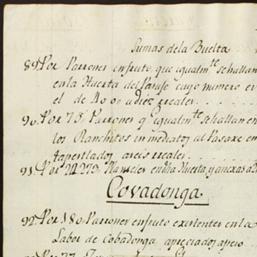 Sumas de la Buelta
89 Por Parrones en fruto, que igualmte se hallan
en la Huerta del Parage cuyo numero
el de a diez reales
90 Por 75 Parrones q igualmte se hallan en
los Ranchitos inmediatos al Pasaxe en
a seis reales
91 Por en dha Huerta, y anexas a
Covadonga.
92 Por 180 Parrones en fruto existentes en la
Labor de Cobadonga apreciados a peso